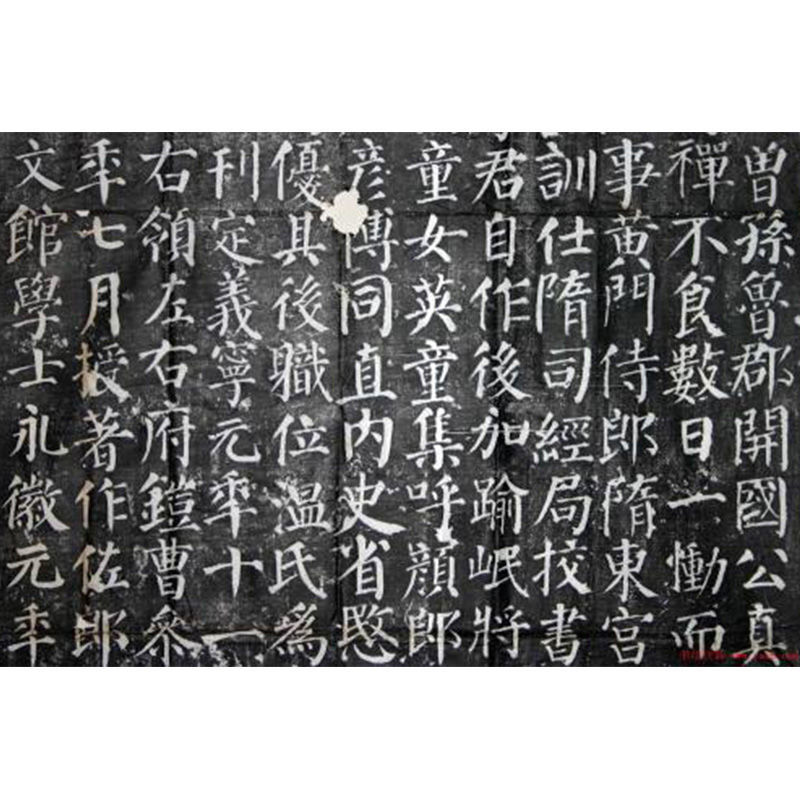 曽孫魯郡開國公真
禪不食數日一慟而
事黄門侍郎隋東宫
訓仕隋司經局挍書
君自作後加踰岷將
童女英童集呼顔郎
彦博同直内史省愍
優其後職位温氏爲
刊定義寧元年十一
右領左右府鎧曹叅
年七月授著作佐郎
文館學士永徽元年